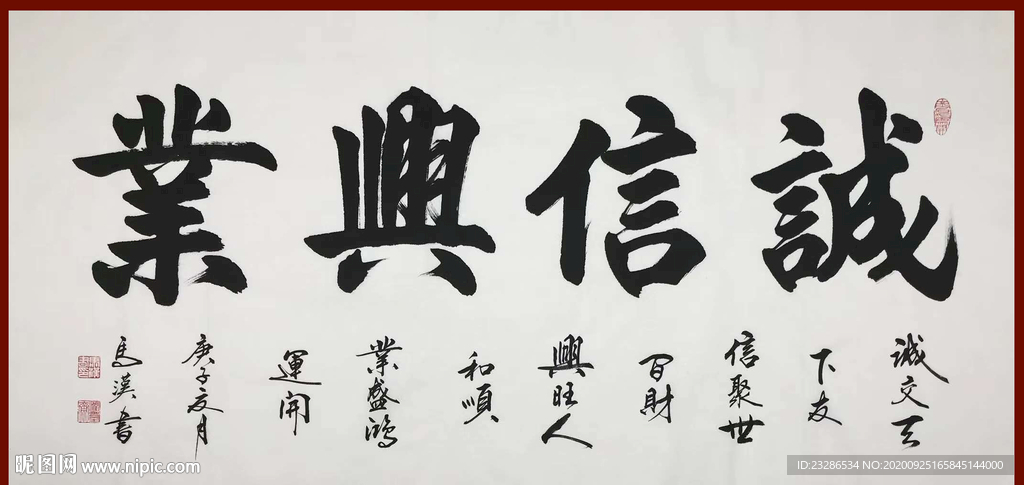 誠信興業
誠交天
下友
信聚世
百財
興旺人
和順
業盛鴻
運開
庚子夏月
馬漢書
昵图网 www.nipic.com
ID:23286534 NO:20200925165845144000